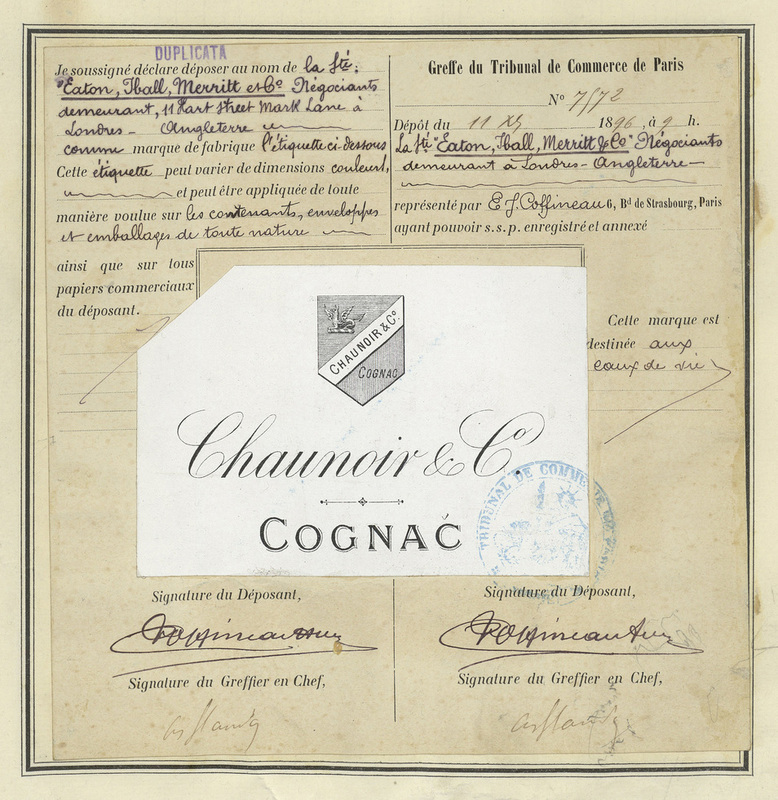 DUPLICATA
Je soussigné déclare déposer au nom de la Sté:
"Eaton, Iball, Merritt et Cº Négociants
demeurant, 11 Hart Street Mark Lane à
Londres - Angleterre
comme marque de fabrique l'étiquette ci-dessous
Cette étiquette peut varier de dimensions couleurs,
et peut être appliquée de toute
manière voulue sur les contenants, enveloppes
et emballages de toute nature
ainsi que sur tous
papiers commerciaux
du déposant.
Greffe du Tribunal de Commerce de Paris
Nº 7572
Dépôt du 11 1896, à 9 h.
La Sté "Eaton, Iball, Merritt & Cº" Négociants
demeurant à Londres - Angleterre -
représenté par E J. Coffineau 6, Bd de Strasbourg, Paris
ayant pouvoir s.s.p. enregistré et annexé
Cette marque est
destinée aux
eaux de vie
CHAUNOIR & Cº
COGNAC
Chaunoir & Cº
COGNAC
TRIBUNAL DE COMMERCE DE PARIS
Signature du Déposant,
Signature du Déposant,
Signature du Greffier en Chef,
Signature du Greffier en Chef,